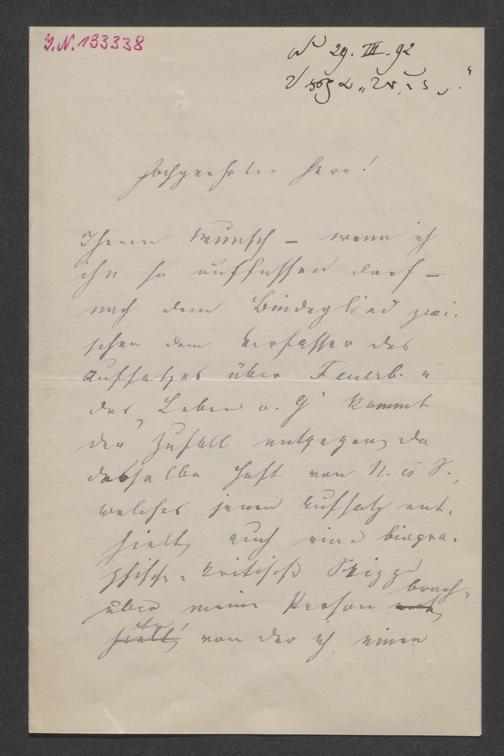 I.N. 133338
29. III. 92
Hochgeehrter Herr!
Ihrem Wunsch – wenn ich
ihn so auffassen darf –
nach dem Bindeglied zwi-
schen dem Verfasser des
Aufsatzes über Feuerb. u
des „Leben o. G" kommt
der Zufall entgegen, da
dasselbe Heft von N. u S.,
welches jenen Aufsatz ent-
hielt, auch eine biogra-
phisch-kritische Skizze
über meine Person brach-
te, von der ich einen